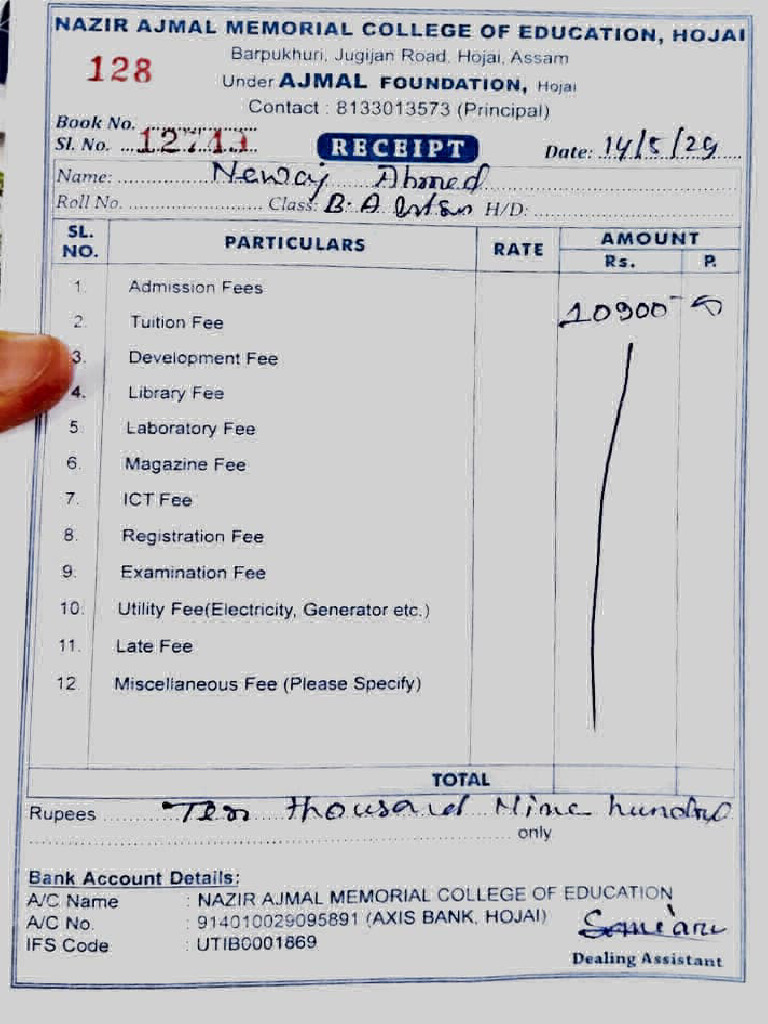 NAZIR AJMAL MEMORIAL COLLEGE OF EDUCATION, HOJAI
Barpukhuri, Jugijan Road, Hojai, Assam
128
Under AJMAL FOUNDATION, Hojai
Contact : 8133013573 (Principal)
Book No.
Sl. No. 12713
RECEIPT
Date: 14/5/29
Name: Neway Ahmed
Roll No. Class: B.A H/D:
SL. NO. PARTICULARS RATE AMOUNT
Rs. P.
1. Admission Fees
10900 - 0
2. Tuition Fee
3. Development Fee
4. Library Fee
5. Laboratory Fee
6. Magazine Fee
7. ICT Fee
8. Registration Fee
9. Examination Fee
10. Utility Fee(Electricity, Generator etc.)
11. Late Fee
12 Miscellaneous Fee (Please Specify)
TOTAL
Rupees Ten thousand Nine hundred
only
Bank Account Details:
A/C Name : NAZIR AJMAL MEMORIAL COLLEGE OF EDUCATION
A/C No. : 914010029095891 (AXIS BANK, HOJAI)
IFS Code : UTIB0001869
Dealing Assistant